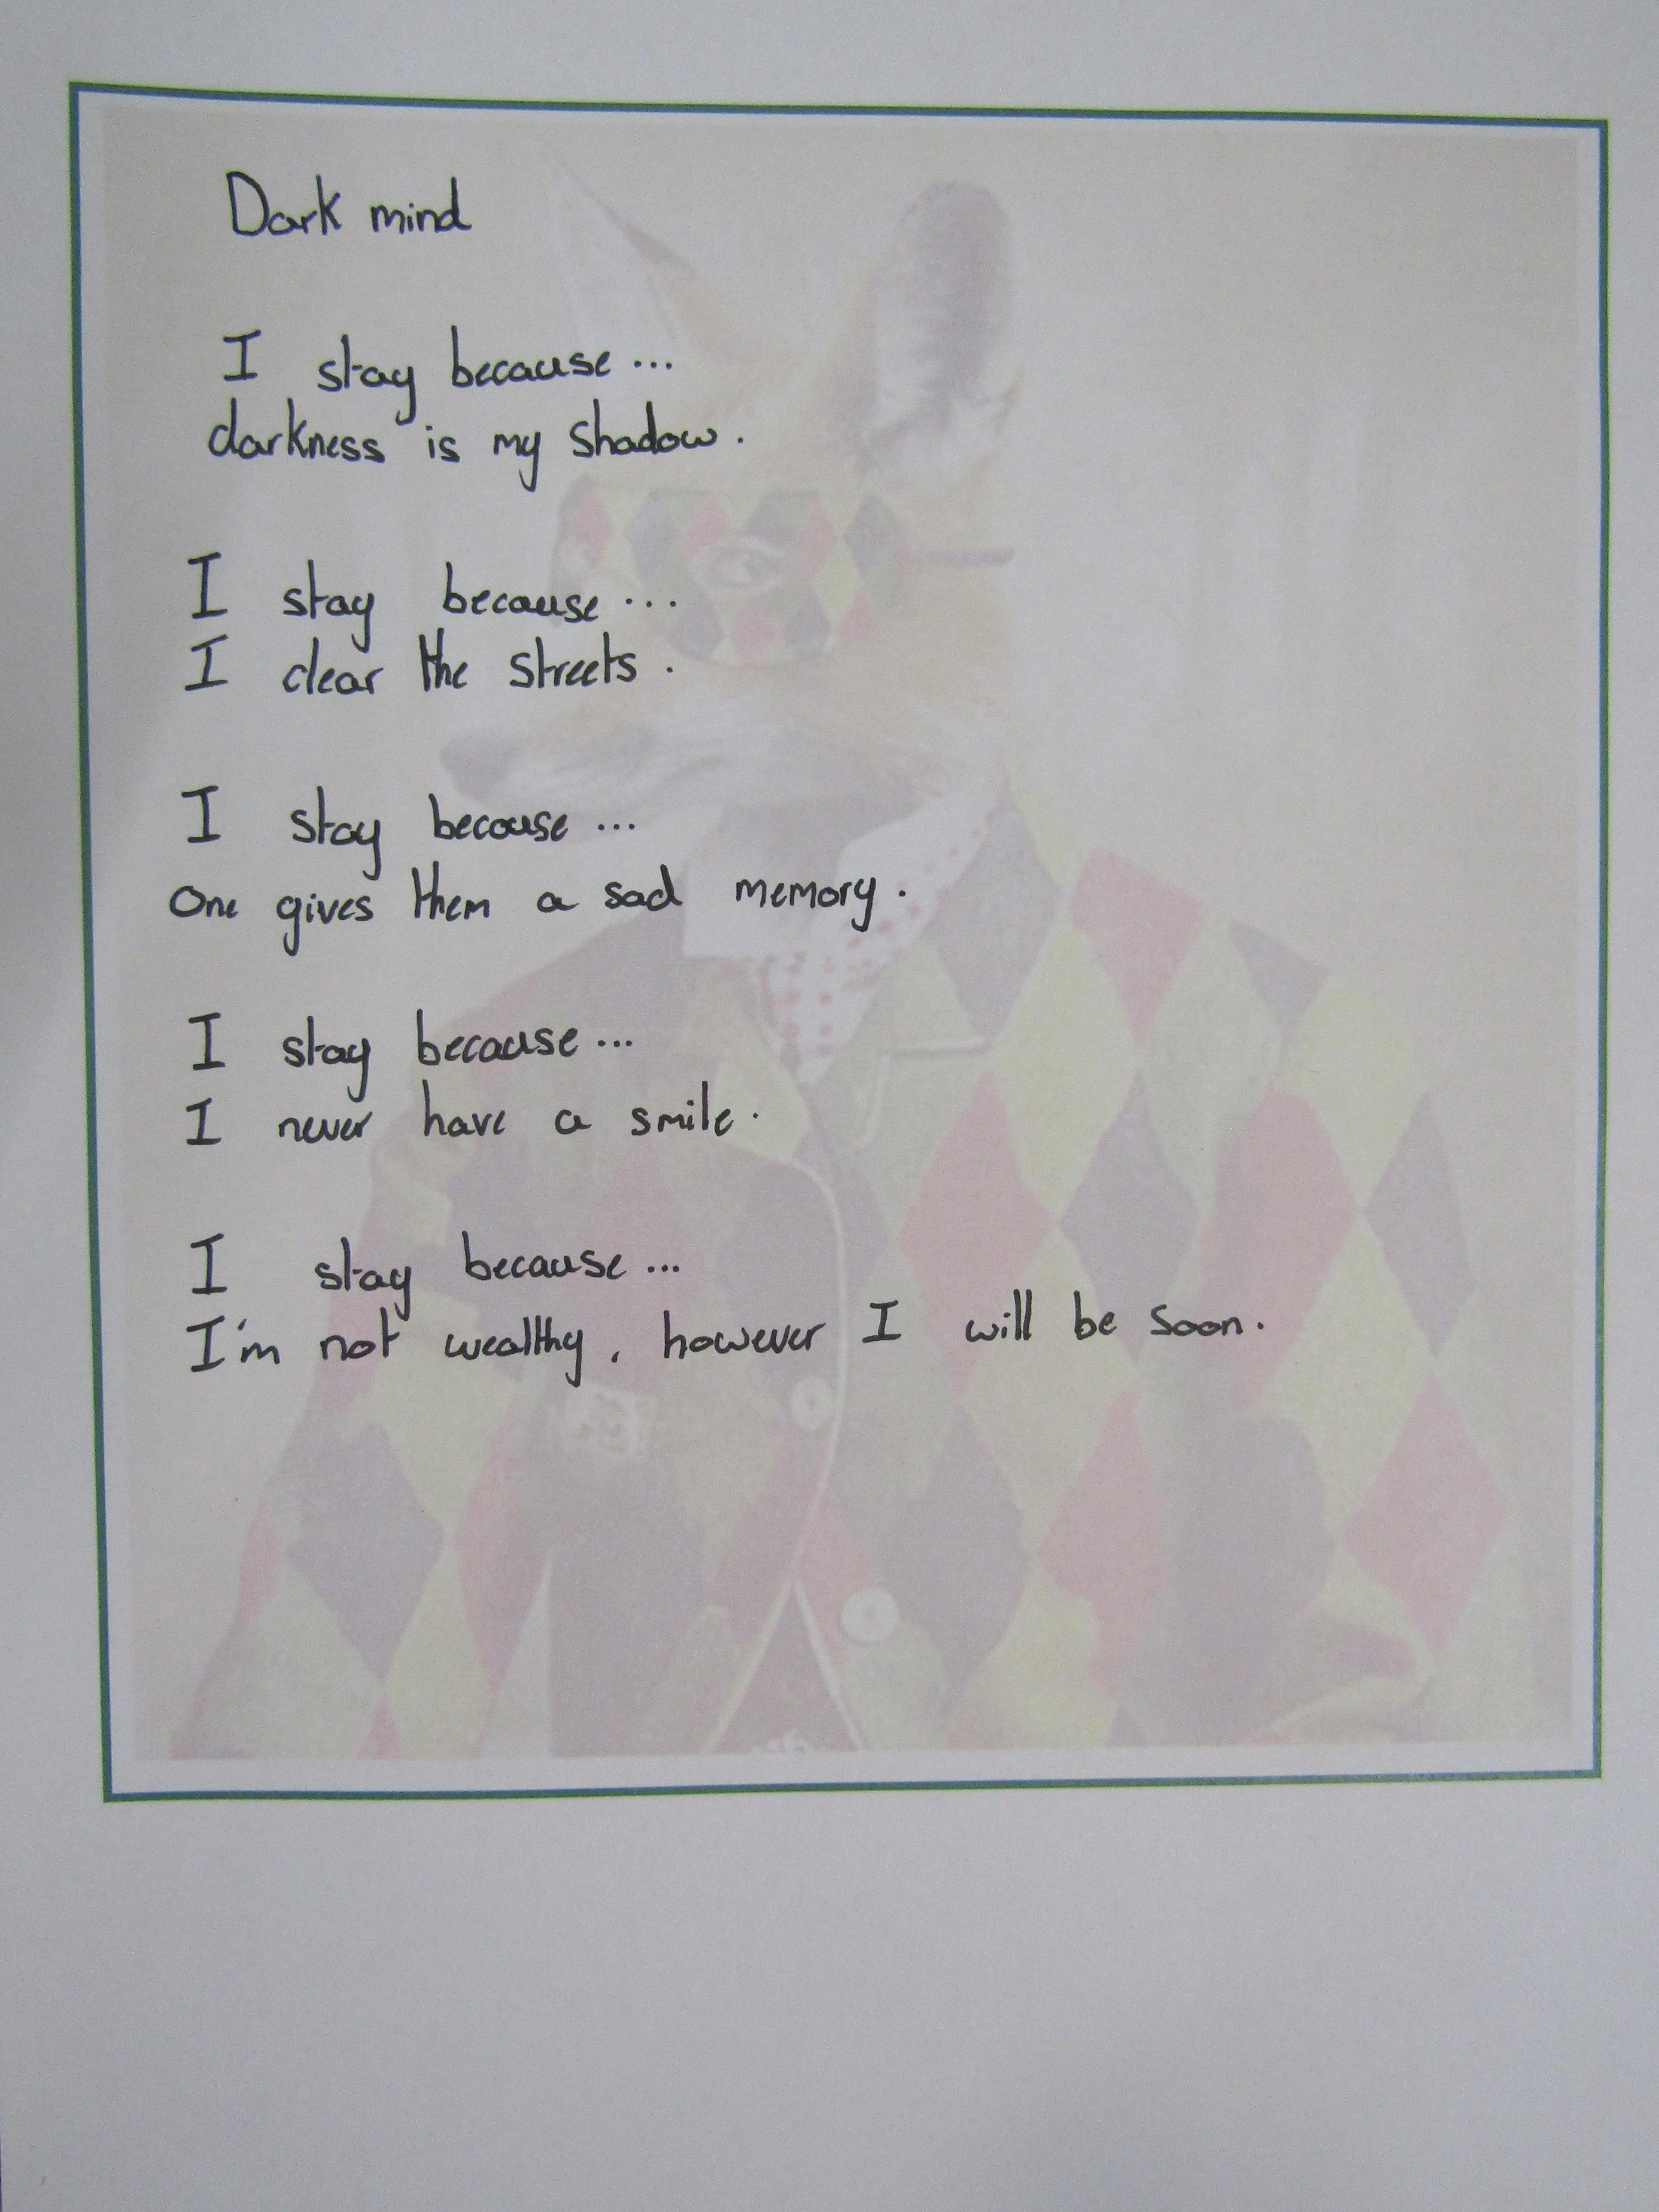 Dark mind
I stay because...
darkness is my shadow.
I stay because...
I clear the streets.
I stay because...
One gives them a sad memory.
I stay because...
I never have a smile.
I stay because...
I'm not wealthy, however I will be soon.